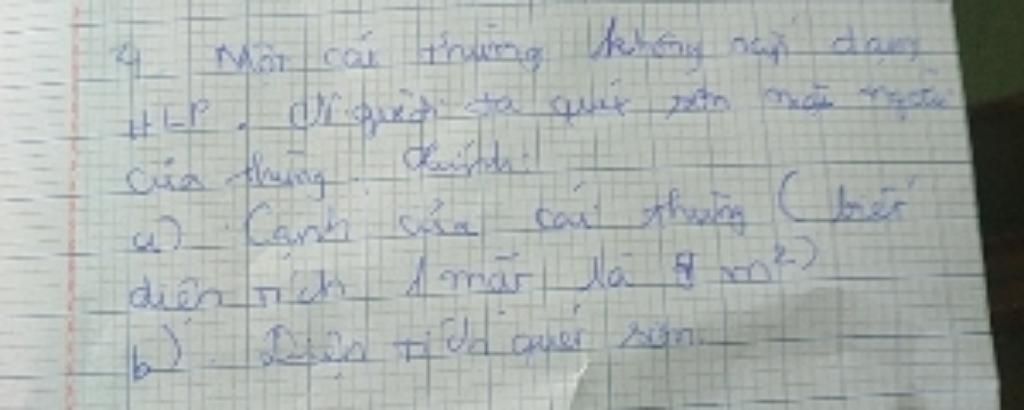 4 Một cái thùng không nắp dạng
HLP. Người ta quét sơn mặt ngoài
của thùng. Tính:
a) Cạnh của cái thùng (biết
diện tích 1 mặt là m²)
b) Diện tích quét sơn.